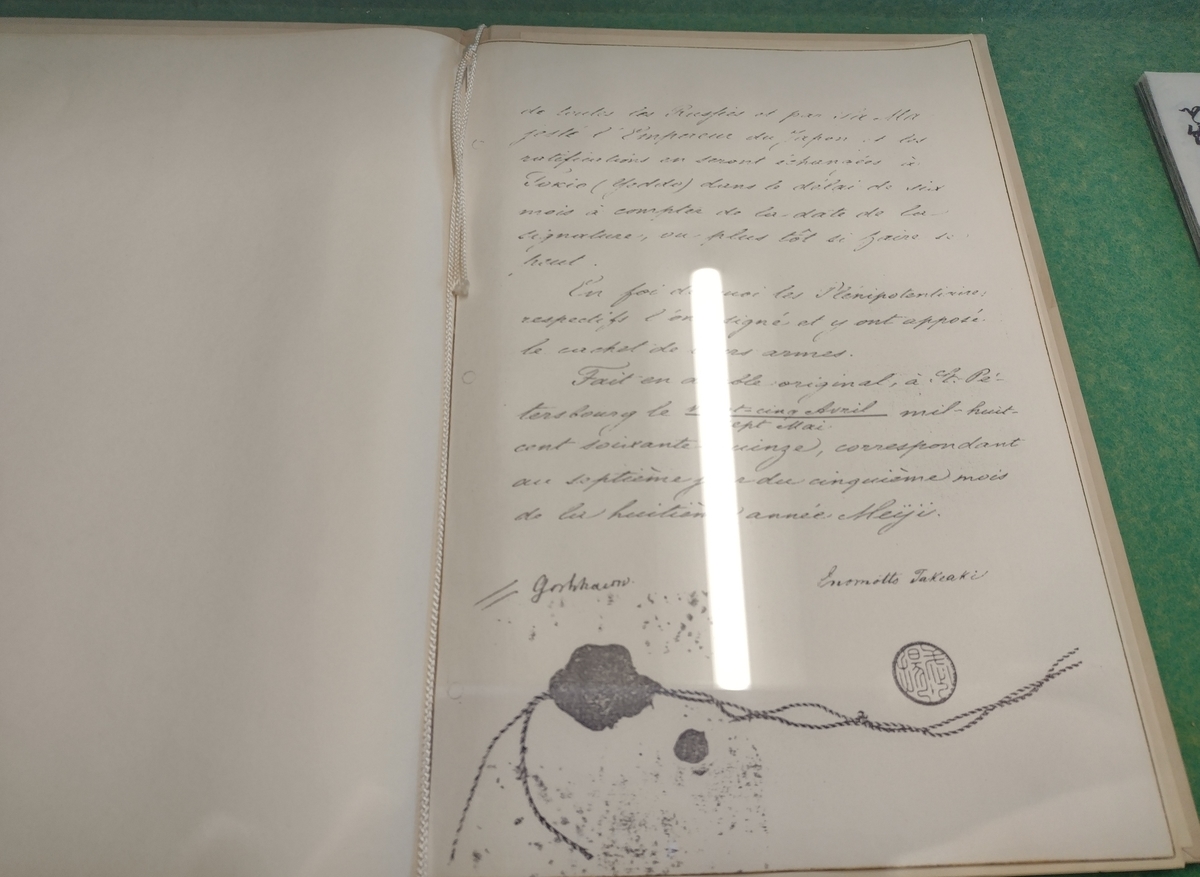 de toutes les Russies et par Sa Ma
jesté l'Empereur du Japon et les
ratifications en seront échangées à
Tokio (Yédo) dans le délai de six
mois à compter de la date de la
signature, ou plus tôt si faire se
peut.
En foi de quoi les Plénipotentiaires
respectifs l'ont signé et y ont apposé
le cachet de leurs armes.
Fait en double original, à St. Pé-
tersbourg le vingt-cinq Avril mil-huit-
sept Mai
cent soixante quinze, correspondant
au septième jour du cinquième mois
de la huitième année Meiji.
Gortchacow.
Enomotto Takeaki